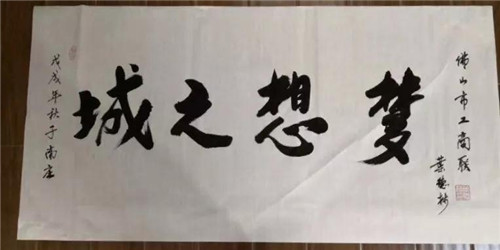 佛山市工商联
梦想之城
戊戌年秋于南庄